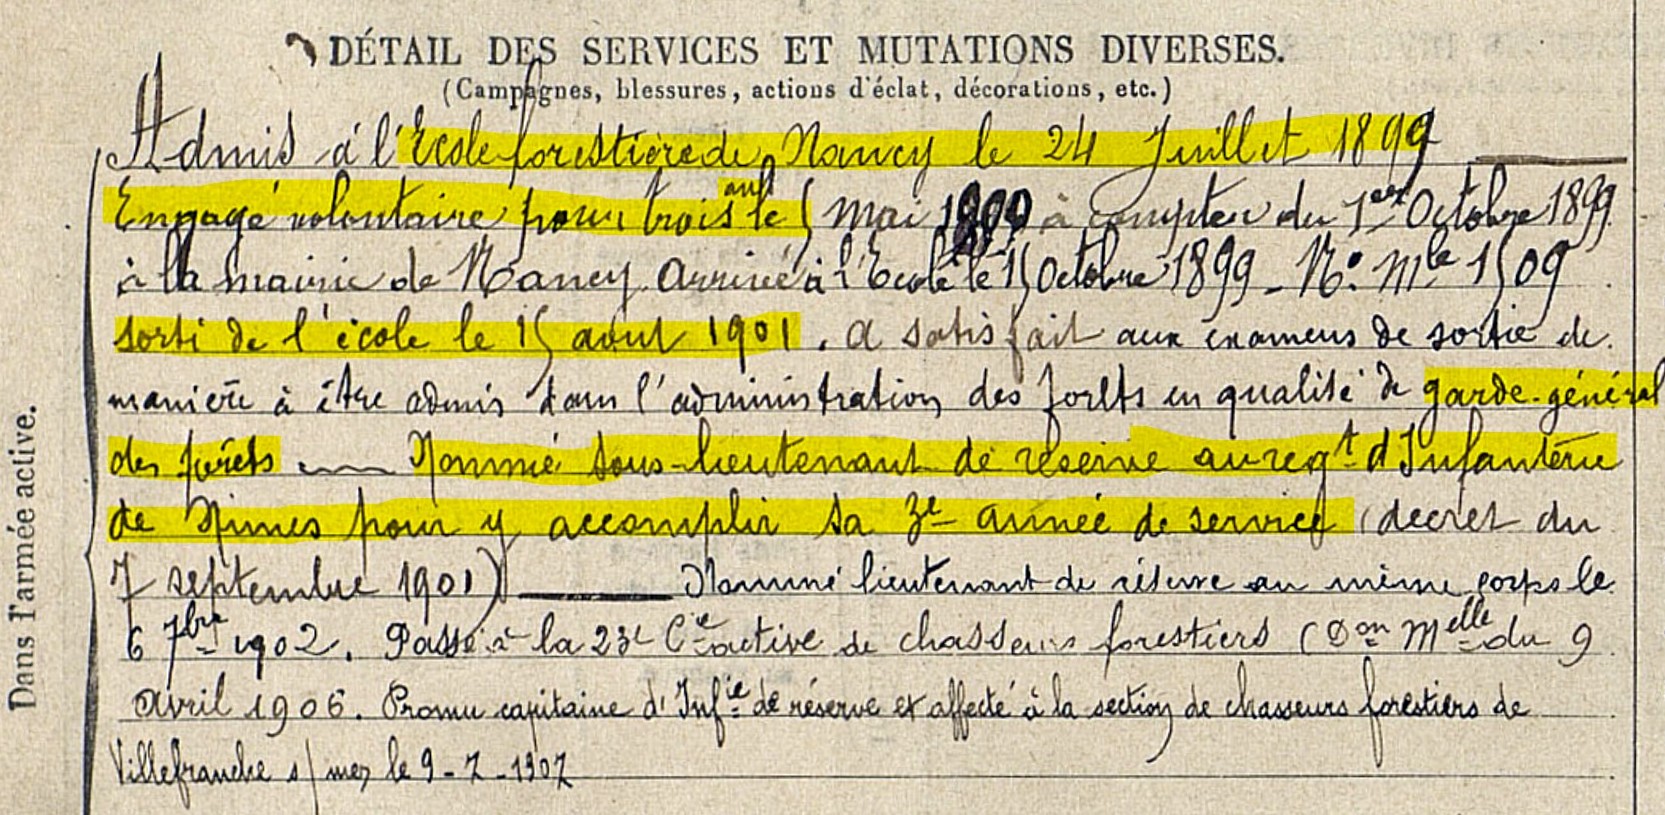 DÉTAIL DES SERVICES ET MUTATIONS DIVERSES.
(Campagnes, blessures, actions d'éclat, décorations, etc.)
Admis à l'Ecole forestière de Nancy le 24 Juillet 1899
Engagé volontaire pour trois ans le 5 mai 1900 à compter du 1er Octobre 1899
à la mairie de Nancy. Arrivé à l'Ecole le 15 Octobre 1899 - No. Mle 1509
sorti de l'école le 15 aout 1901. a satisfait aux examens de sortie de
manière à être admis dans l'administration des forêts en qualité de garde-général
des forêts Nommé sous-lieutenant de réserve au regt d'Infanterie
de Nimes pour y accomplir sa 3e année de service (décret du
7 septembre 1901) Nommé lieutenant de réserve au même corps le
6 7bre 1902. Passé à la 23e Cie active de chasseurs forestiers (Don Melle du 9
avril 1906. Promu capitaine d'Infie de réserve et affecté à la section de chasseurs forestiers de
Villefranche s/mer le 9-7-1907
Dans l'armée active.